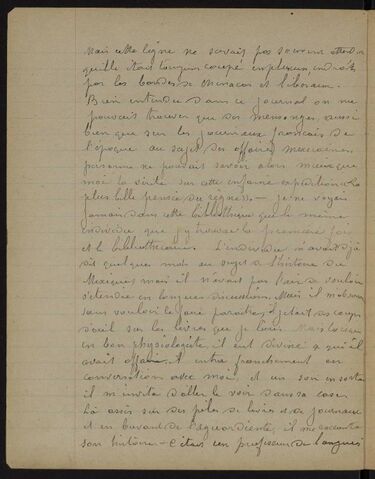 Mais cette ligne ne servait pas souvent attendu
qu'elle était toujours coupée en plusieurs endroits
par les bandes de Miracos et liberaux.
Bien entendu dans ce journal on ne
pouvait trouver que des mensonges, aussi
bien que sur les journaux français de
l'époque au sujet des affaires mexicaines
personne ne pouvait savoir alors mieux que
moi la vérité sur cette infame expédition « la
plus belle pensée du règne » — je ne voyais
jamais dans cette bibliothèque que le même
individu que j'y trouvai la première fois
et le bibliothécaire. L'individu m'avait déjà
dit quelques mots au sujet de l'histoire du
Mexique mais il n'avait pas l'air de vouloir
s'étendre en longues discussions. Mais il m'observait
sans vouloir le faire paraitre, il jetait des coups
d'œil sur les livres que je lisais. Mais
en bon physiologiste, il eut deviné à qui il
avait affaire. Il entra franchement en
conversation avec moi, et un soir en sortant
il m'invita d'aller le voir dans sa casa
Là assis sur des piles de livres et de journaux
et en buvant de l'aguardiente, il me raconta
son histoire — C'était un professeur de langues